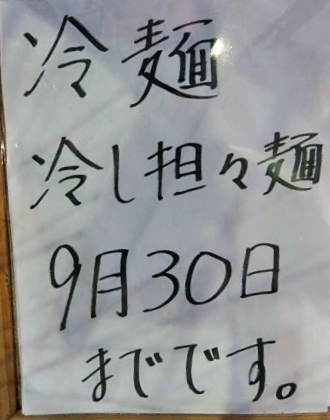 冷麺
冷し担々麺
9月30日
までです。